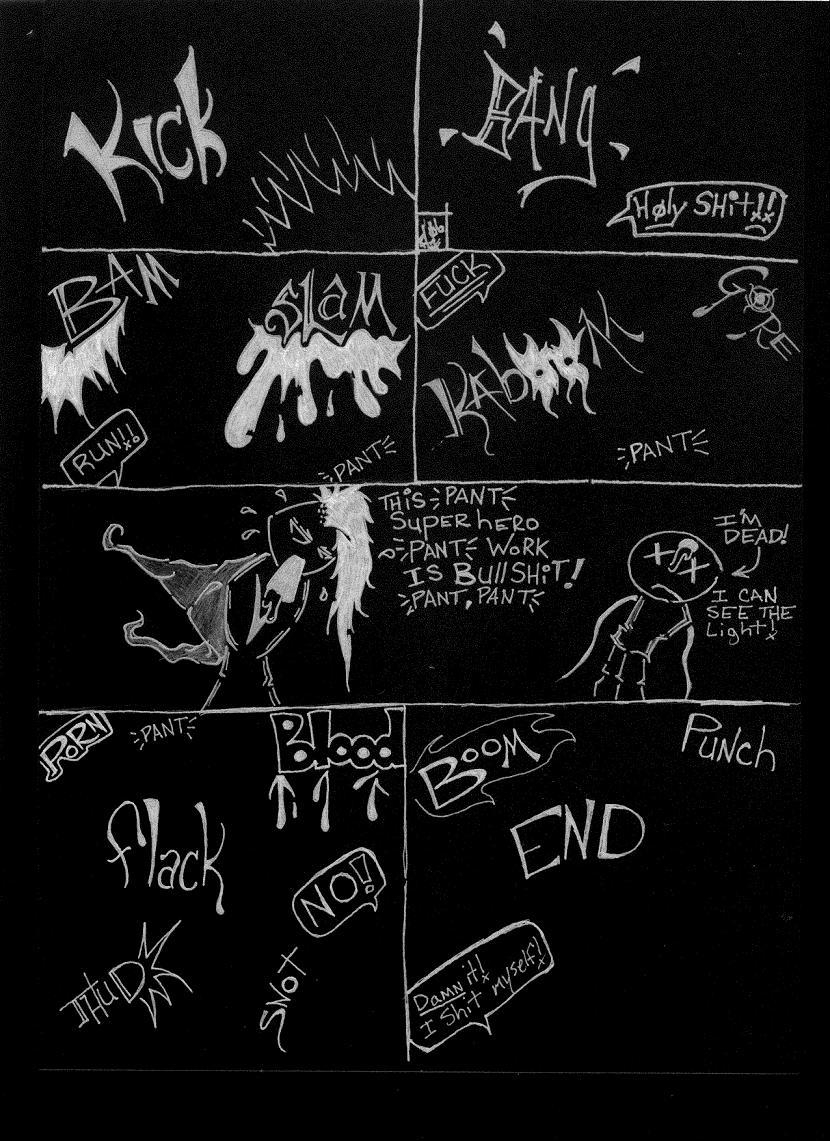 Kick
BANg
HØly SHiT!!
BAM
SLaM
RUN!!
PANT
FUCK
GORE
KabOOM
PANT
THiS PANT
SUPER hERO
PANT WORK
IS BUllSHiT!
PANT, PANT
I'M
DEAD!
I CAN
SEE THE
Light!
PORN
PANT
Blood
flack
NO!
THUD
SNOT
BOOM
PUNCh
END
DaMN it!
I SHit MySelf!